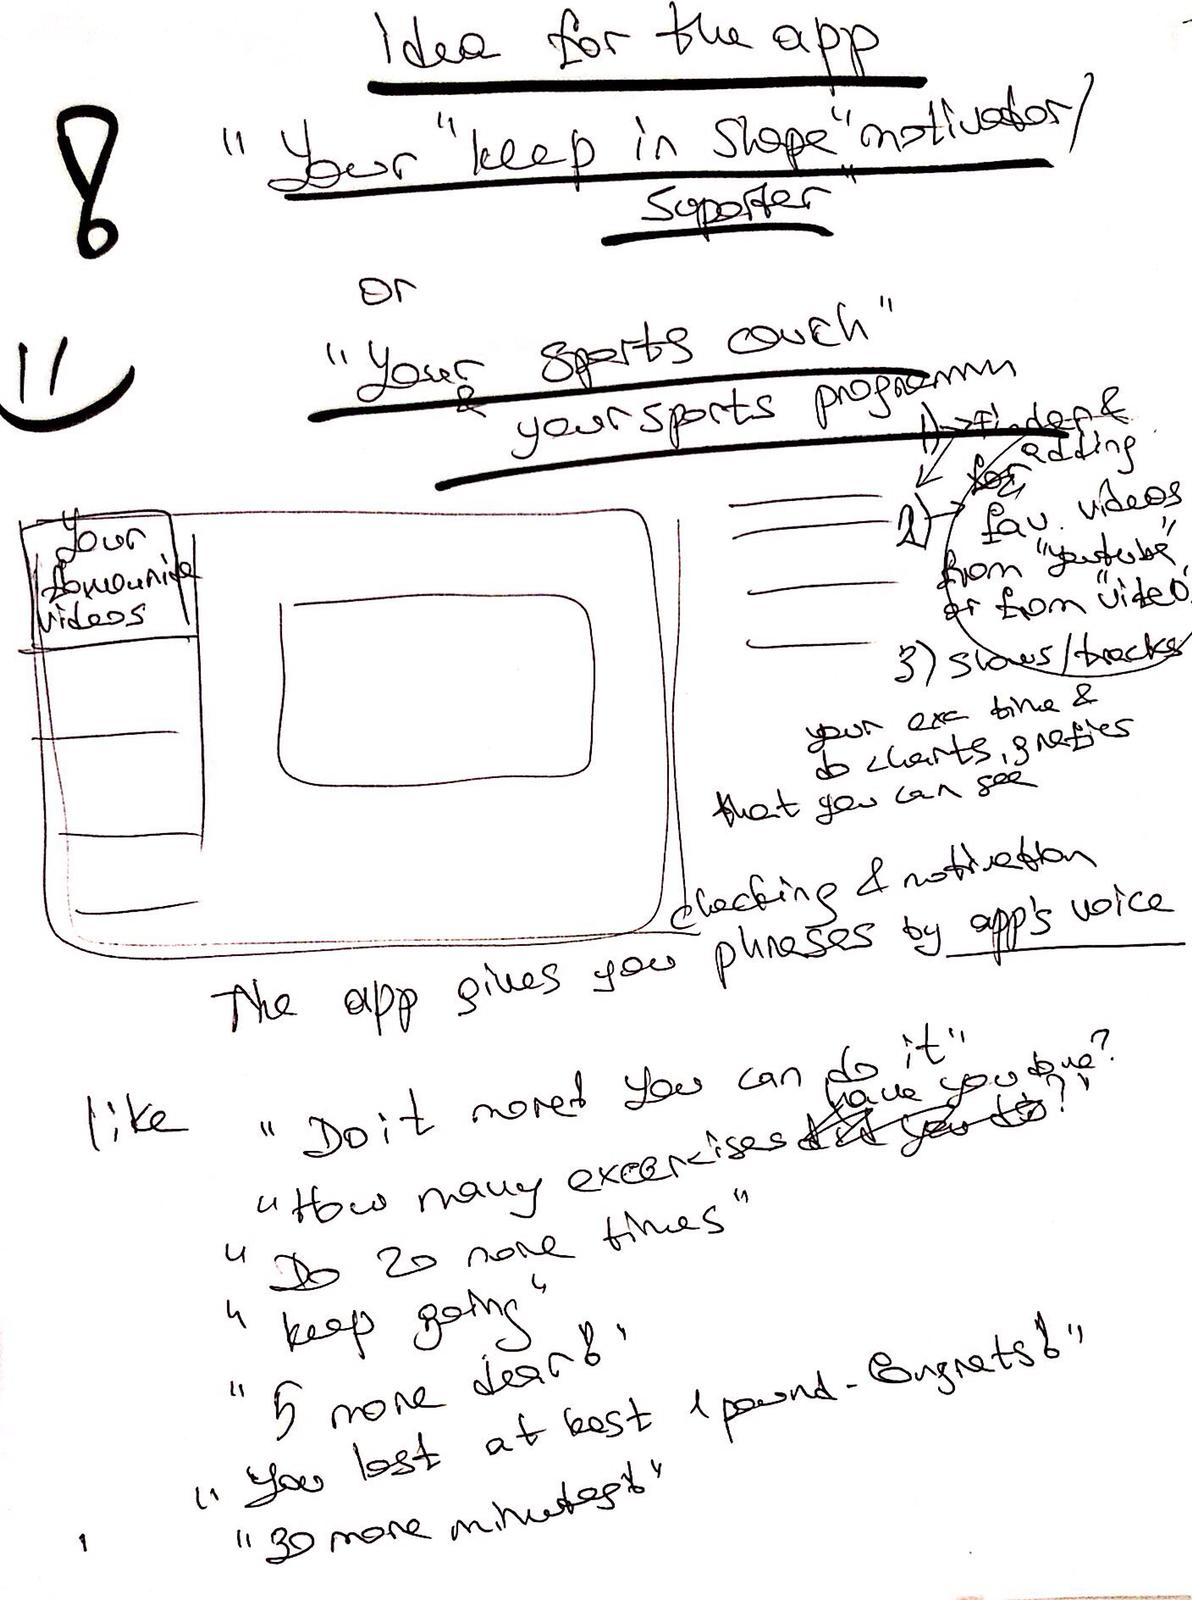 Idea for the app
"Your "keep in shape" motivator/
suporter"
or
"Your sports couch"
& your sports programm
1) → finder &
for adding
2) → fav. videos
from "youtube"
or from "video"
Your
favourite
videos
3) Slows/tracks
your exc time &
do charts, grafics
that you can see
The app gives you checking & motivation
phrases by app's voice
like "Do it more! You can do it"
"How many excercises have you done?"
"Do 20 more times"
"keep going"
"5 more dear!"
"You lost at least 1 pound - Congrats!"
"30 more minutes!"